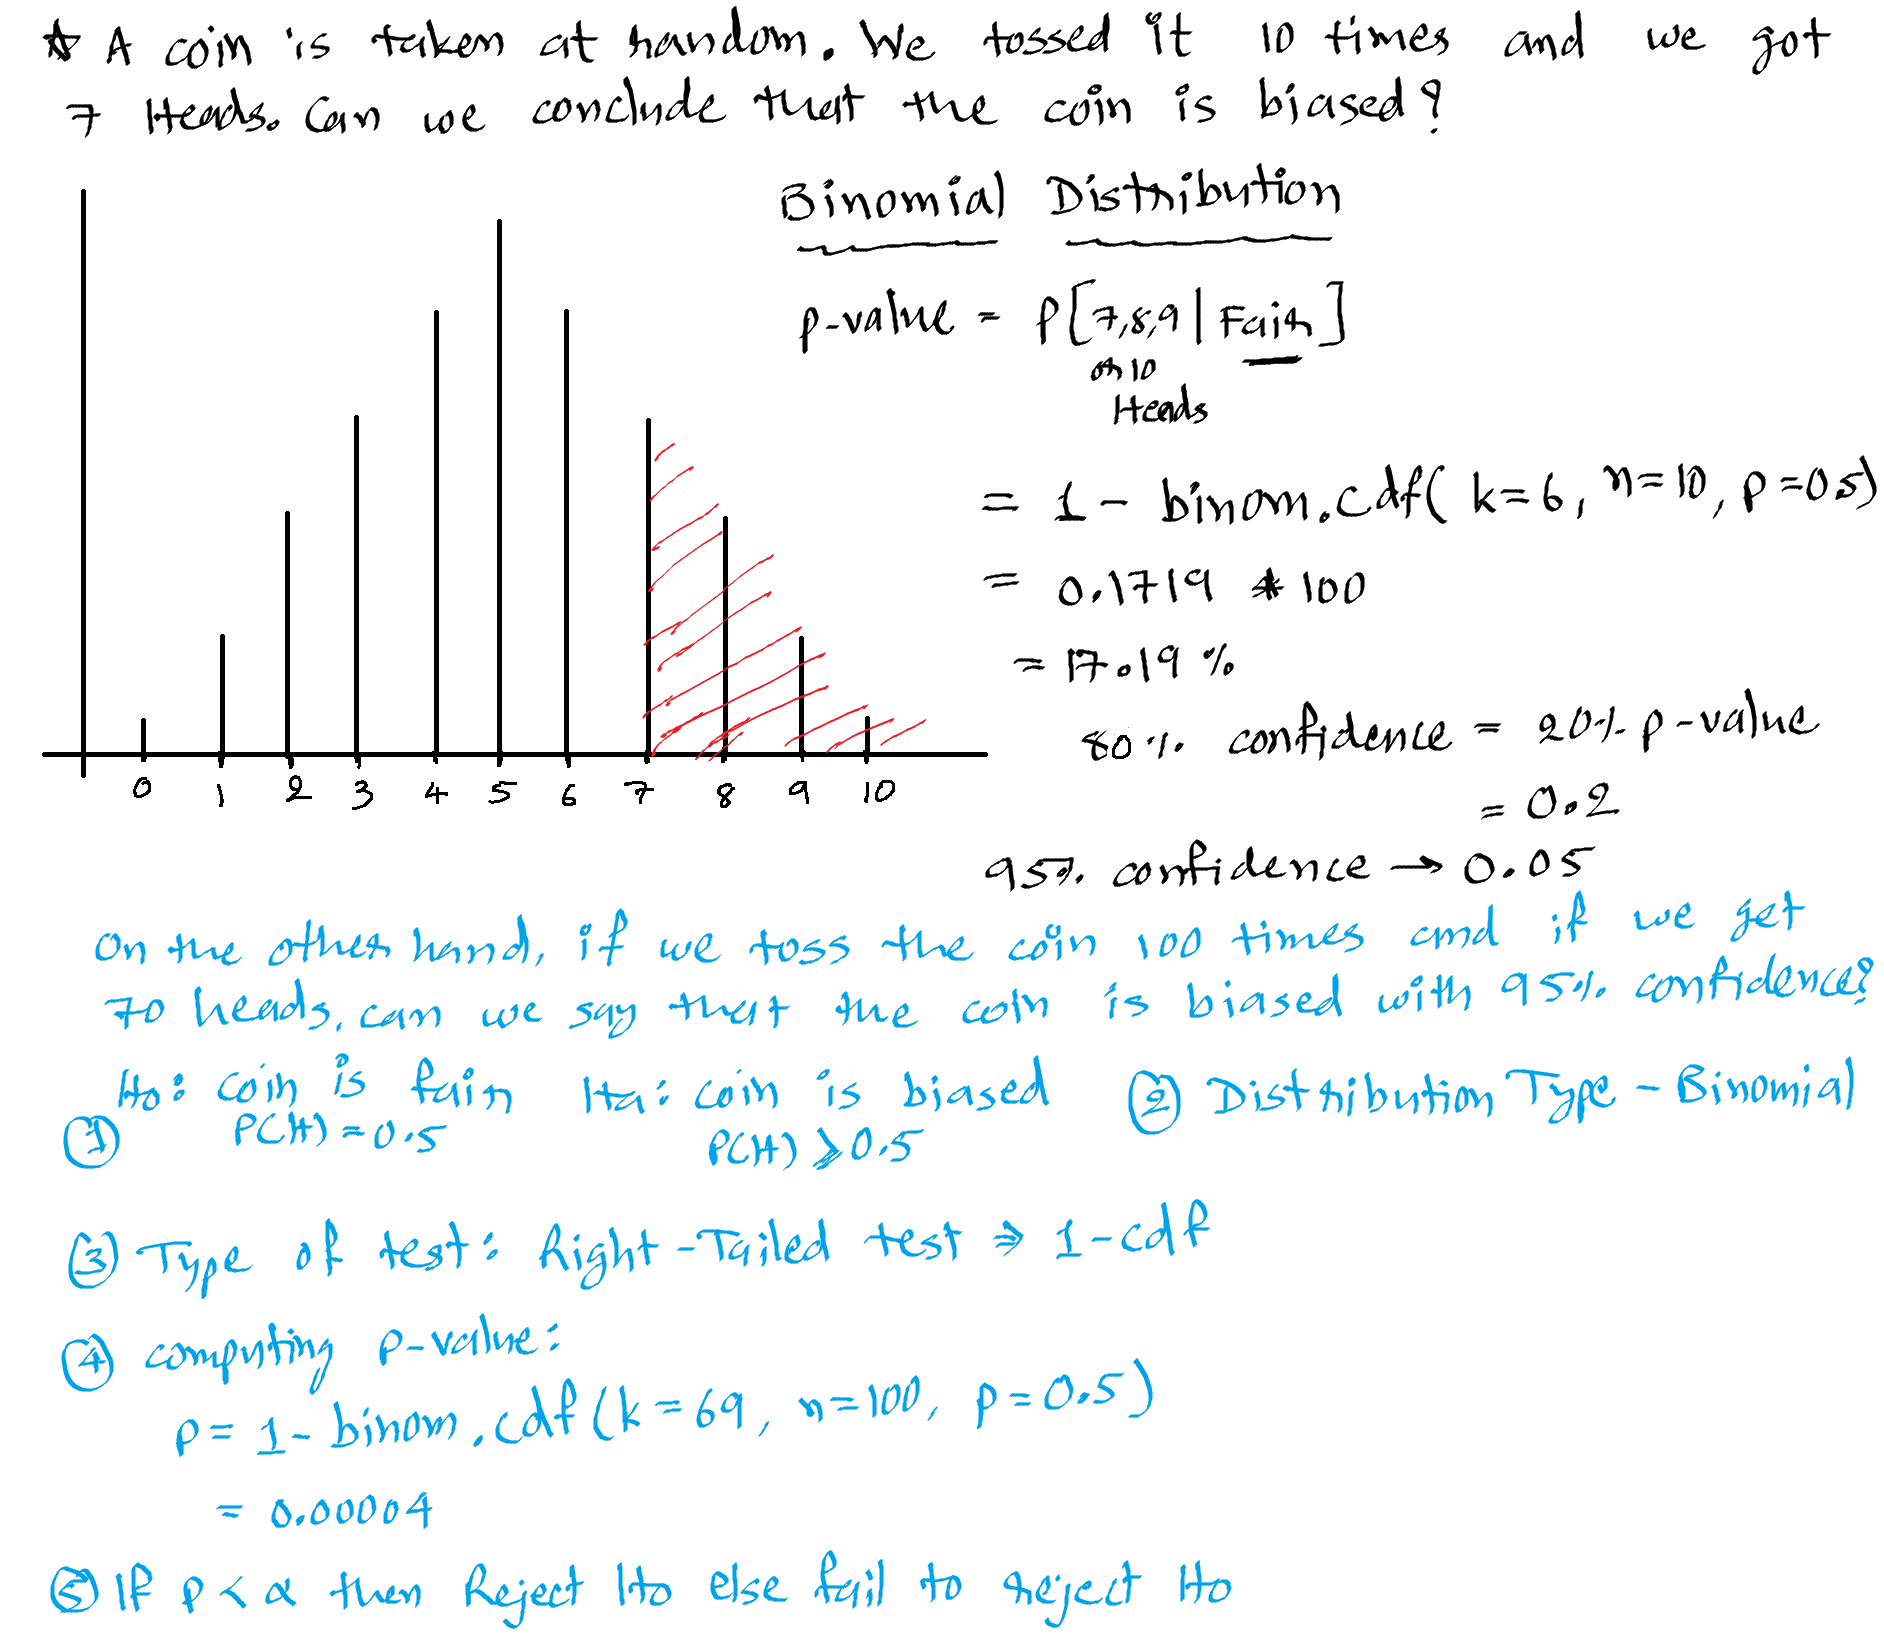 ☆ A coin is taken at random. We tossed it 10 times and we got
7 Heads. Can we conclude that the coin is biased?
Binomial Distribution
p-value = P[7,8,9 | Fair]
or 10
Heads
= 1 - binom.cdf( k=6, n=10, p=0.5)
= 0.1719 * 100
= 17.19 %
80 % confidence = 20% p-value
= 0.2
95% confidence → 0.05
0 1 2 3 4 5 6 7 8 9 10
On the other hand, if we toss the coin 100 times and if we get
70 heads, can we say that the coin is biased with 95% confidence?
① Ho: coin is fair Ha: coin is biased ② Distribution Type - Binomial
P(H) = 0.5 P(H) > 0.5
③ Type of test: Right-Tailed test ⇒ 1-cdf
④ computing p-value:
p = 1 - binom.cdf (k = 69, n=100, p = 0.5)
= 0.00004
⑤ If p < α then Reject Ho else fail to reject Ho